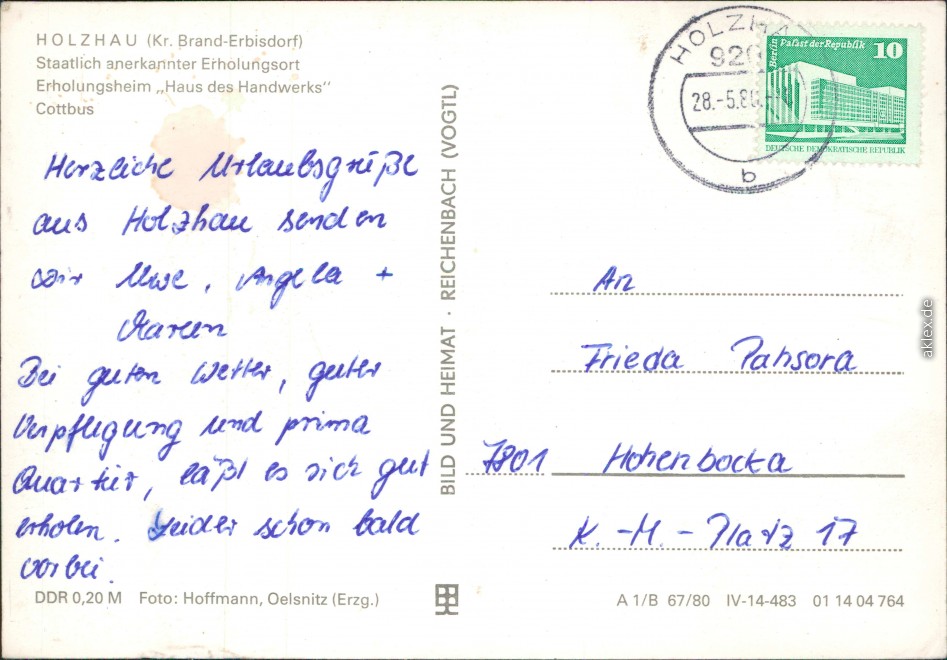 HOLZHAU (Kr. Brand-Erbisdorf)
Staatlich anerkannter Erholungsort
Erholungsheim „Haus des Handwerks"
Cottbus
Herzliche Urlaubsgrüße
aus Holzhau senden
wir Uwe, Angela +
Maren
Bei guten Wetter, guter
Verpflegung und prima
Quartier, läßt es sich gut
erholen. Leider schon bald
vorbei.
DDR 0,20 M Foto: Hoffmann, Oelsnitz (Erzg.)
BILD UND HEIMAT · REICHENBACH (VOGTL)
HOLZHA
920
28.-5.8
b
Berlin Palast der Republik 10
DEUTSCHE DEMOKRATISCHE REPUBLIK
An
Frieda Pahsora
7801 Hohenbocka
K.-M.-Platz 17
A 1/B 67/80 IV-14-483 01 14 04 764
aklex.de